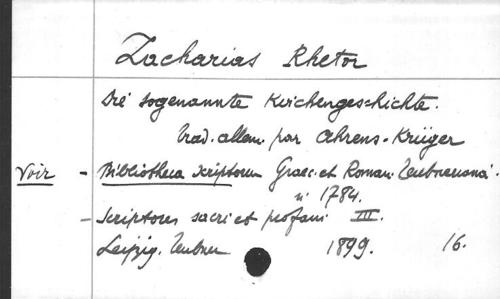 Zacharias Rhetor
Die sogenannte Kirchengeschichte.
Trad. allem. par Ahrens-Krüger
Voir - Bibliotheca scriptorum Graec. et Roman. Teubneriana.
n° 1784.
- Scriptores sacri et profani III.
Leipzig. Teubner 1899. 16.